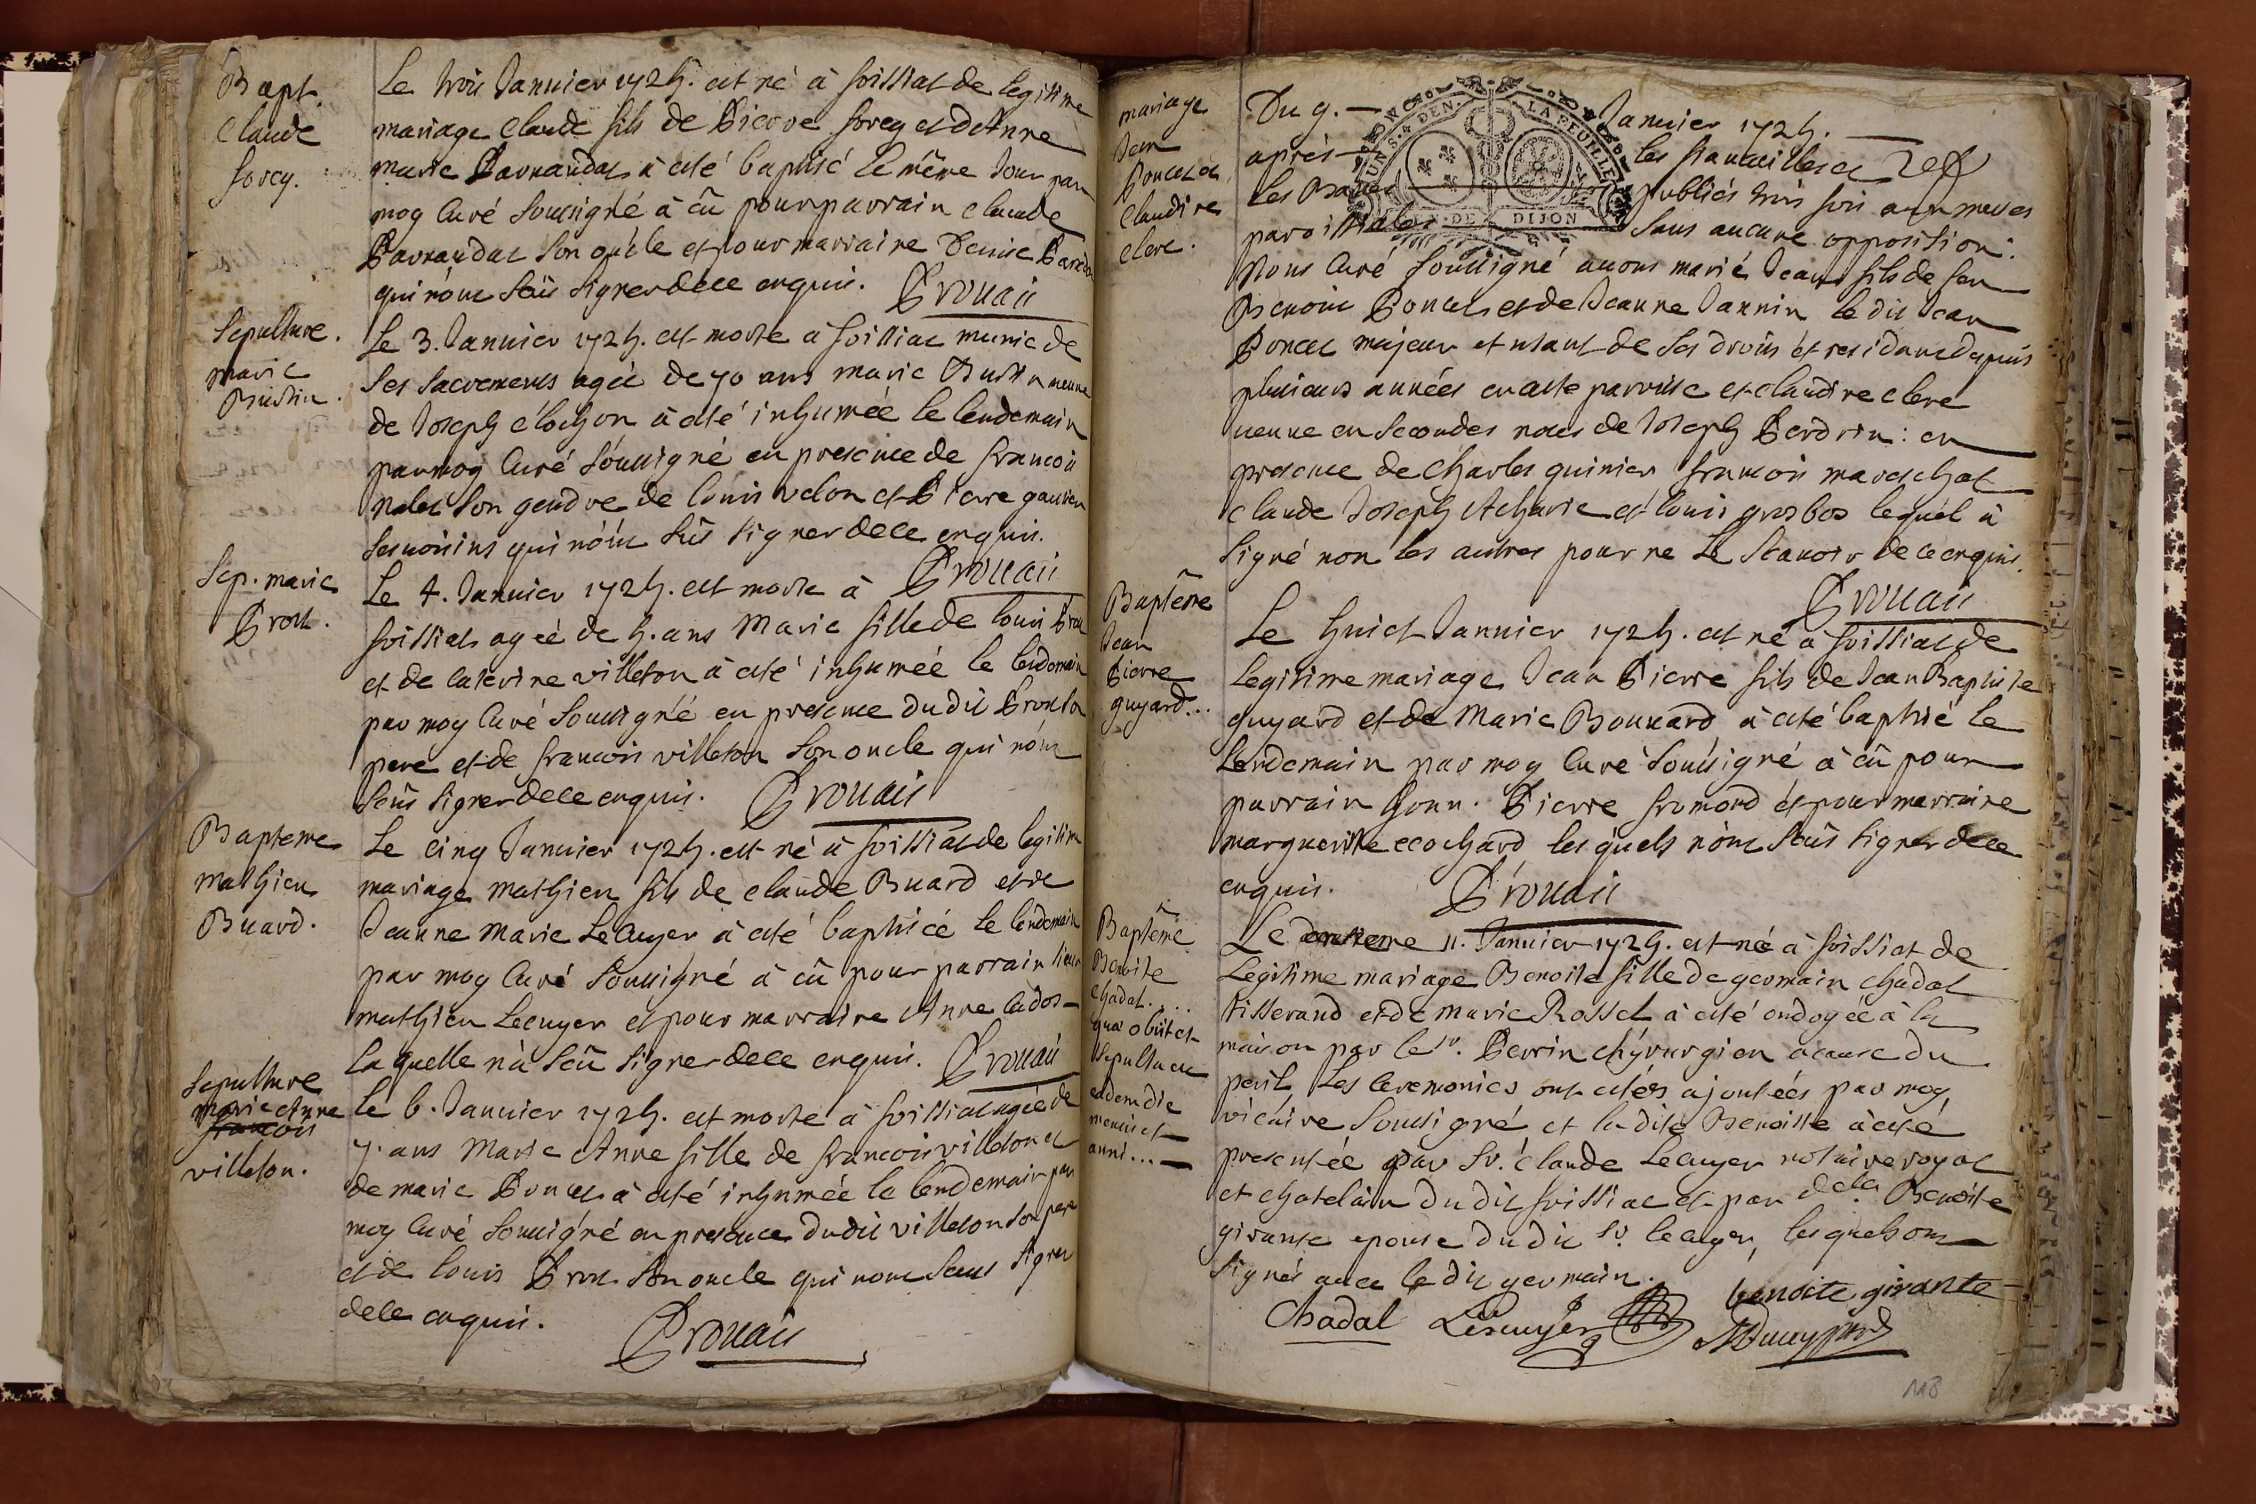 Bapt.
Claude
forey.
Le trois Janvier 1725. est né à foissiat de legitime
mariage Claude fils de Pierre forey et d'Anne
marie Pavraudat à esté baptisé le même Jour par
moy Curé soussigné à eû pour parrain claude
Pavraudat son oncle et pour marraine Denise
qui n'ont sçeû signer de ce enquis. Prouais
Sepulture.
marie
Bustin.
Le 3. Janvier 1725. est morte à foissiat munie de
ses sacremens agée de 70 ans marie Bustin veuve
de Joseph clochon à esté inhumée le lendemain
par moy Curé soussigné en presence de francois
nalet son gendre de louis velon et Pierre
ses voisins qui n'ont sçû signer de ce enquis.
Prouais
Sep. marie
Prost.
Le 4. Janvier 1725. est morte à
foissiat agée de 5. ans Marie fille de louis Prost
et de Caterine villeton à esté inhumée le lendemain
par moy Curé soussigné en presence dudit Prost son
pere et de francois villeton son oncle qui n'ont
sçeû signer de ce enquis. Prouais
Bapteme
mathieu
Buard.
Le cinq Janvier 1725. est né à foissiat de legitime
mariage mathieu fils de claude Buard et de
Jeanne Marie Lecuyer à esté baptisé le lendemain
par moy Curé soussigné à eû pour parrain sieur
mathieu Lecuyer et pour marraine Anne Cados
laquelle n'a sçeû signer de ce enquis. Prouais
Sepulture
marie Anne
francois
villeton.
Le 6. Janvier 1725. est morte à foissiat agée de
7. ans Marie Anne fille de francois villeton et
de marie Poncet à esté inhumée le lendemain par
moy Curé soussigné en presence dudit villeton son pere
et de louis Prost son oncle qui n'ont sceus signer
de ce enquis.
Prouais
mariage
Jean
Poncet et
Claudine
clerc.
Du 9. Janvier 1725.
après les fiançailles et
les Bans publiés trois fois aux messes
paroissiales sans aucune opposition:
UNS. 4. DEN. LA FEUILLE
EN. DE DIJON
Nous Curé soussigné avons marié Jean fils de feu
Benoit Poncet et de Jeanne Jannin le dit Jean
Poncet majeur et usant de ses droits et residant depuis
plusieurs années en cette parroisse et claudine clerc
veuve en secondes noces de Joseph Perdrix: en
presence de Charles quinier francois mareschal
claude Joseph Acharie et louis grosbos lequel à
signé non les autres pour ne le scavoir de ce enquis.
Prouais
Baptême
Jean
Pierre
guyard...
Le huict Janvier 1725. est né à foissiat de
legitime mariage Jean Pierre fils de Jean Baptiste
guyard et de Marie Bouvard à esté baptisé le
lendemain par moy Curé soussigné à eû pour
parrain honn. Pierre fromond et pour marraine
marguerite ecochard lesquels n'ont sçeûs signer de ce
enquis. Prouais
Baptême
Benoite
Chadal...
quæ obiit et
sepulta est
eadem die
mensis et
anni...
Le 11. Janvier 1725. est née à foissiat de
Legitime mariage Benoite fille de germain chadal
tisserand et de marie Rosset à esté ondoyée à la
maison par le sr. Perrin chyrurgien à cause du
peril, les Ceremonies ont estées ajoutées par moy
vicaire soussigné et la dite Benoitte à esté
presentée par Sr. claude Lecuyer notaire royal
et chatelain du dit foissiat et par delle Benoite
girante epouse du dit sr. lecuyer, lesquels ont
signés avec le dit germain.
Chadal Lescuyer benoite girante
118